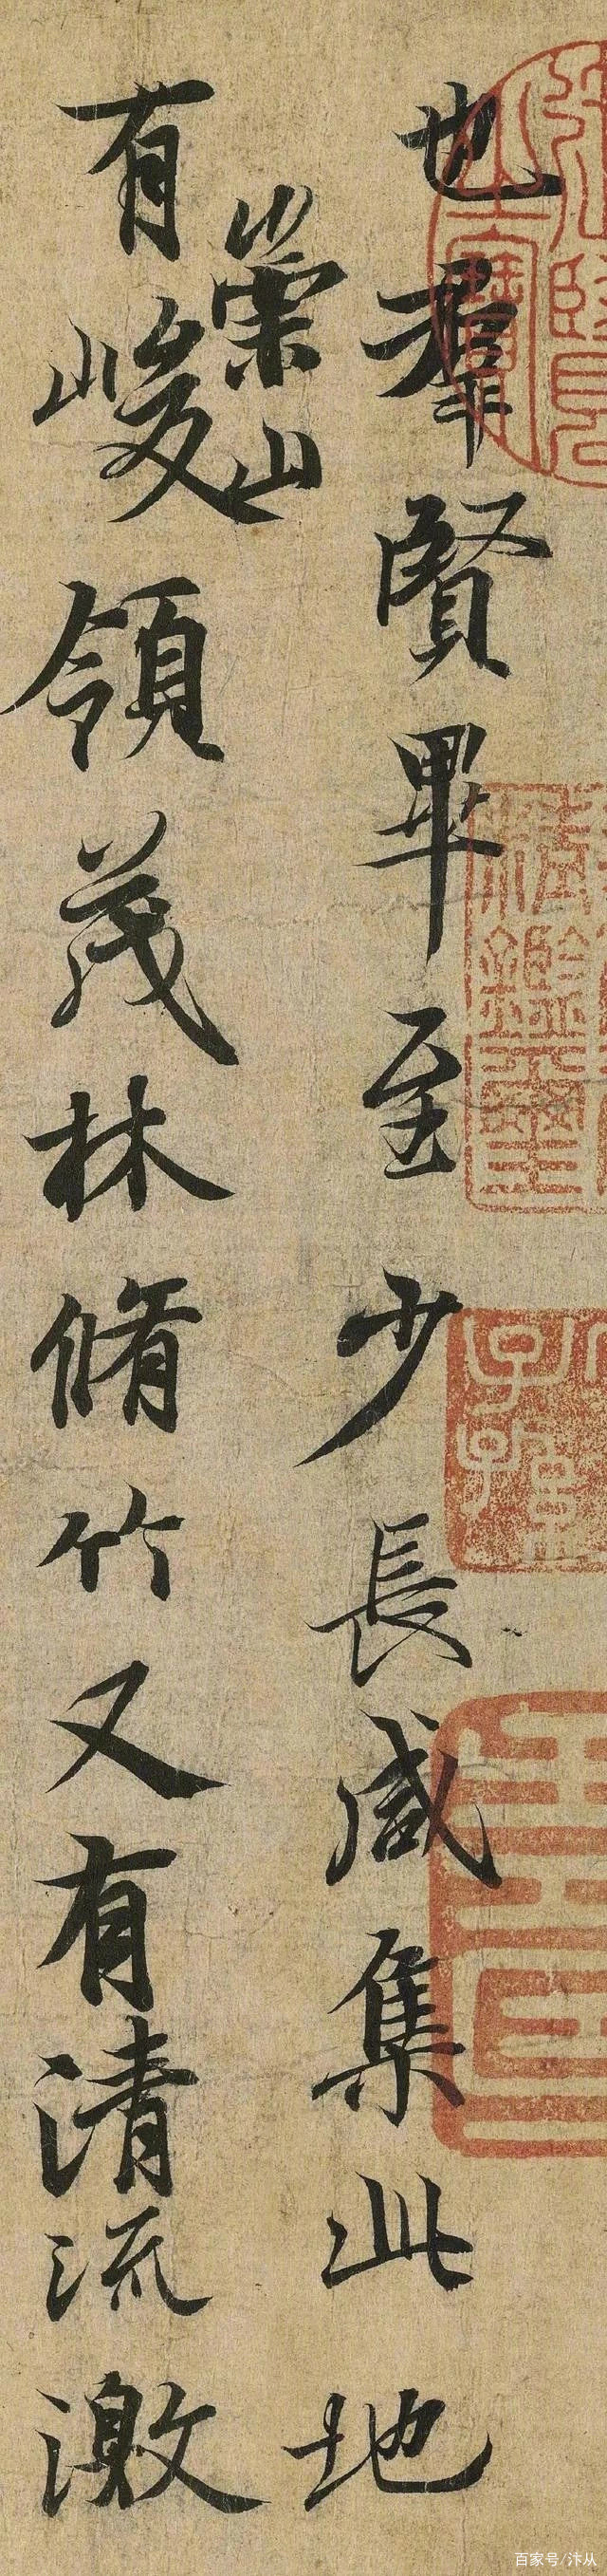 也羣賢畢至少長咸集此地
崇山
有峻領茂林脩竹又有清流激
百家号/汴从